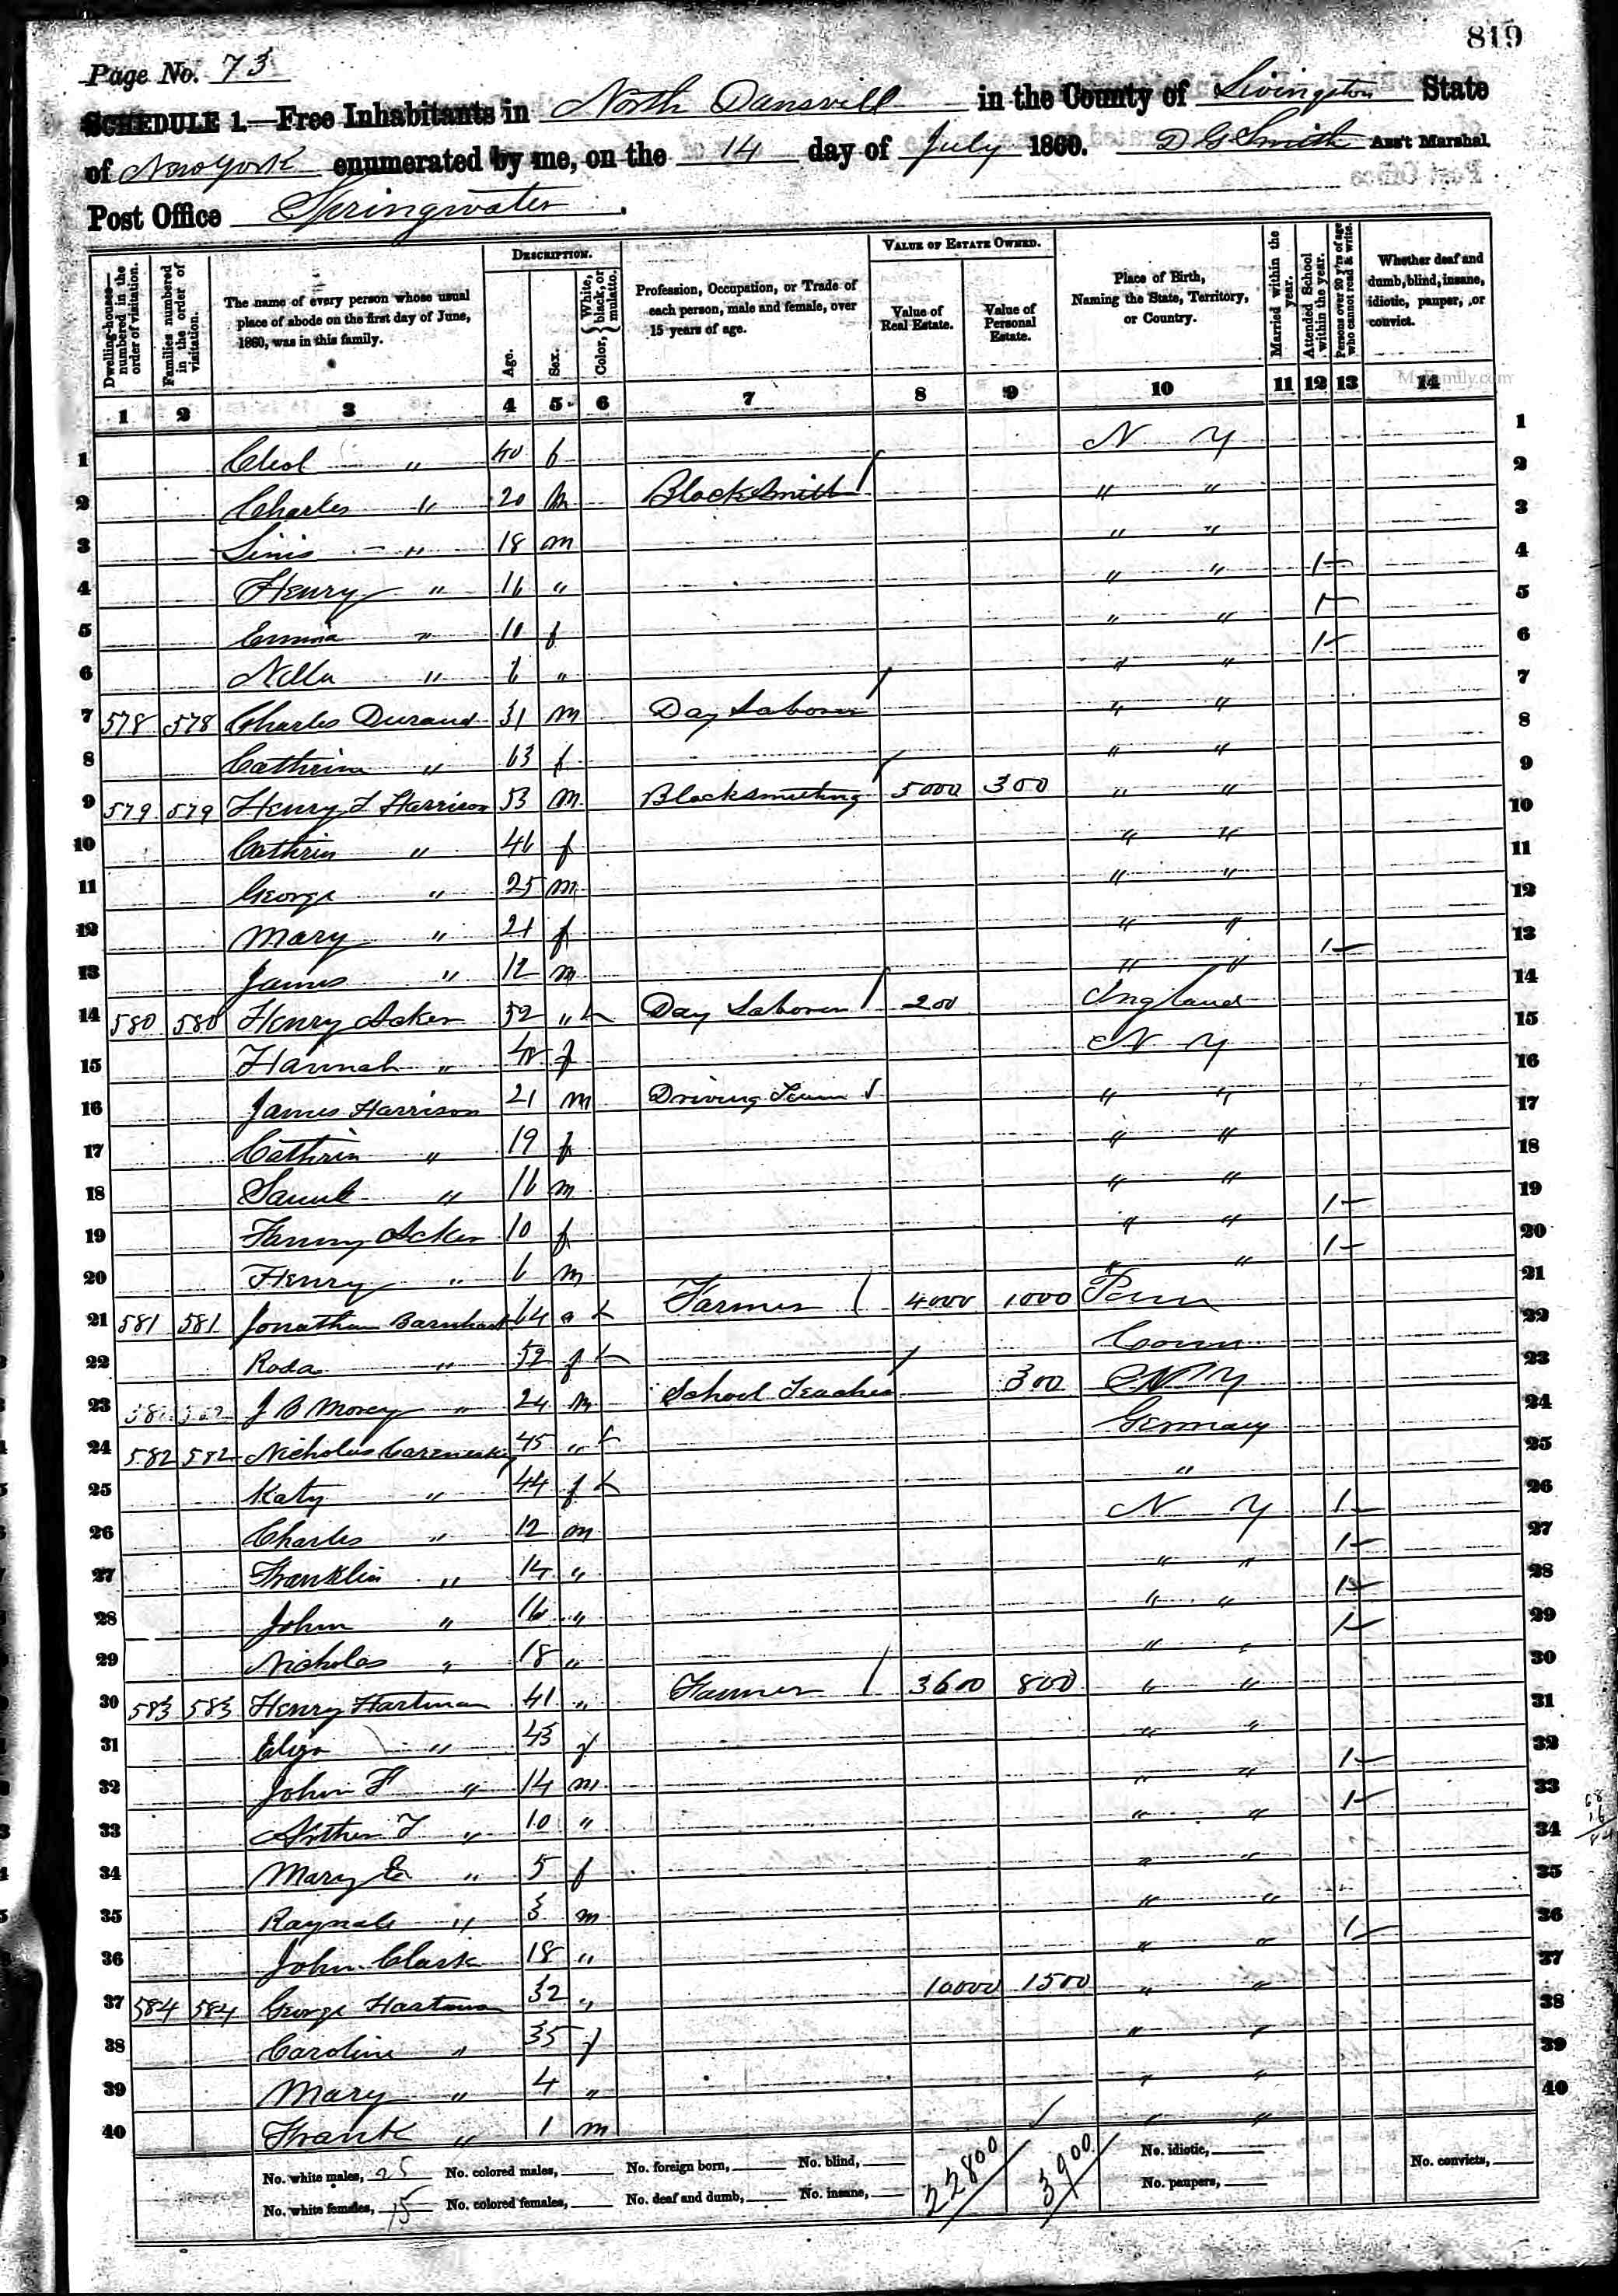 819
Page No. 73
SCHEDULE 1.—Free Inhabitants in North Dansvill in the County of Livingston State
of New York enumerated by me, on the 14 day of July 1860. D G Smith Ass't Marshal.
Post Office Springwater
Dwelling-houses—numbered in the order of visitation.
Families numbered in the order of visitation.
The name of every person whose usual place of abode on the first day of June, 1860, was in this family.
DESCRIPTION.
Age.
Sex.
Color, { White, black, or mulatto.
Profession, Occupation, or Trade of each person, male and female, over 15 years of age.
VALUE OF ESTATE OWNED.
Value of Real Estate.
Value of Personal Estate.
Place of Birth, Naming the State, Territory, or Country.
Married within the year.
Attended School within the year.
Persons over 20 y'rs of age who cannot read & write.
Whether deaf and dumb, blind, insane, idiotic, pauper, or convict.
MyFamily.com
1 2 3 4 5 6 7 8 9 10 11 12 13 14
1 " 40 f N Y 1
2 Charles " 20 m Blacksmith " " 2
3 " 18 m " " 3
4 Henry " 16 " " " 1 4
5 Emma " 10 f " " 1 5
6 " 6 " " " 1 6
7 578 578 Charles Durand 31 m Day Laborer " " 7
8 Cathrine " 63 f " " 8
9 579 579 Henry L Harrison 53 m Blacksmithing 5000 300 " " 9
10 Cathrin " 46 f " " 10
11 George " 25 m " " 11
12 Mary " 21 f " " 12
13 James " 12 m " " 1 13
14 580 580 Henry Acker 52 " Day Laborer 200 England 14
15 Hannah " f N Y 15
16 James Harrison 21 m Driving Team " " 16
17 Cathrin " 19 f " " 17
18 Samul " 16 m " " 18
19 Fanny Acker 10 f " " 1 19
20 Henry " 6 m " " 1 20
21 581 581 Jonathan Barnhart 64 Farmer 4000 1000 Penn 21
22 Roda " 52 f Conn 22
23 J B Morey " 24 m School Teacher 300 N Y 23
24 582 582 Nicholas 45 " Germany 24
25 Katy " 44 f " 25
26 Charles " 12 m N Y 1 26
27 Franklin " 14 " " " 1 27
28 John " 16 " " " 1 28
29 Nicholas " 18 " " " 1 29
30 583 583 Henry Hartman 41 " Farmer 3600 800 " " 30
31 Eliza " 45 f " " 31
32 John F " 14 m " " 1 32
33 " 10 " " " 1 33
34 Mary E " 5 f " " 34
35 " 3 m " " 35
36 John Clark 18 " " " 1 36
37 584 584 George Hartman 32 " 10000 1500 " " 37
38 Caroline " 35 f " " 38
39 Mary " 4 " " " 39
40 Frank " 1 m " " 40
No. white males, 25 No. colored males, No. foreign born, No. blind, 22800 3900 No. idiotic, No. convicts,
No. white females, 15 No. colored females, No. deaf and dumb, No. insane, No. paupers,